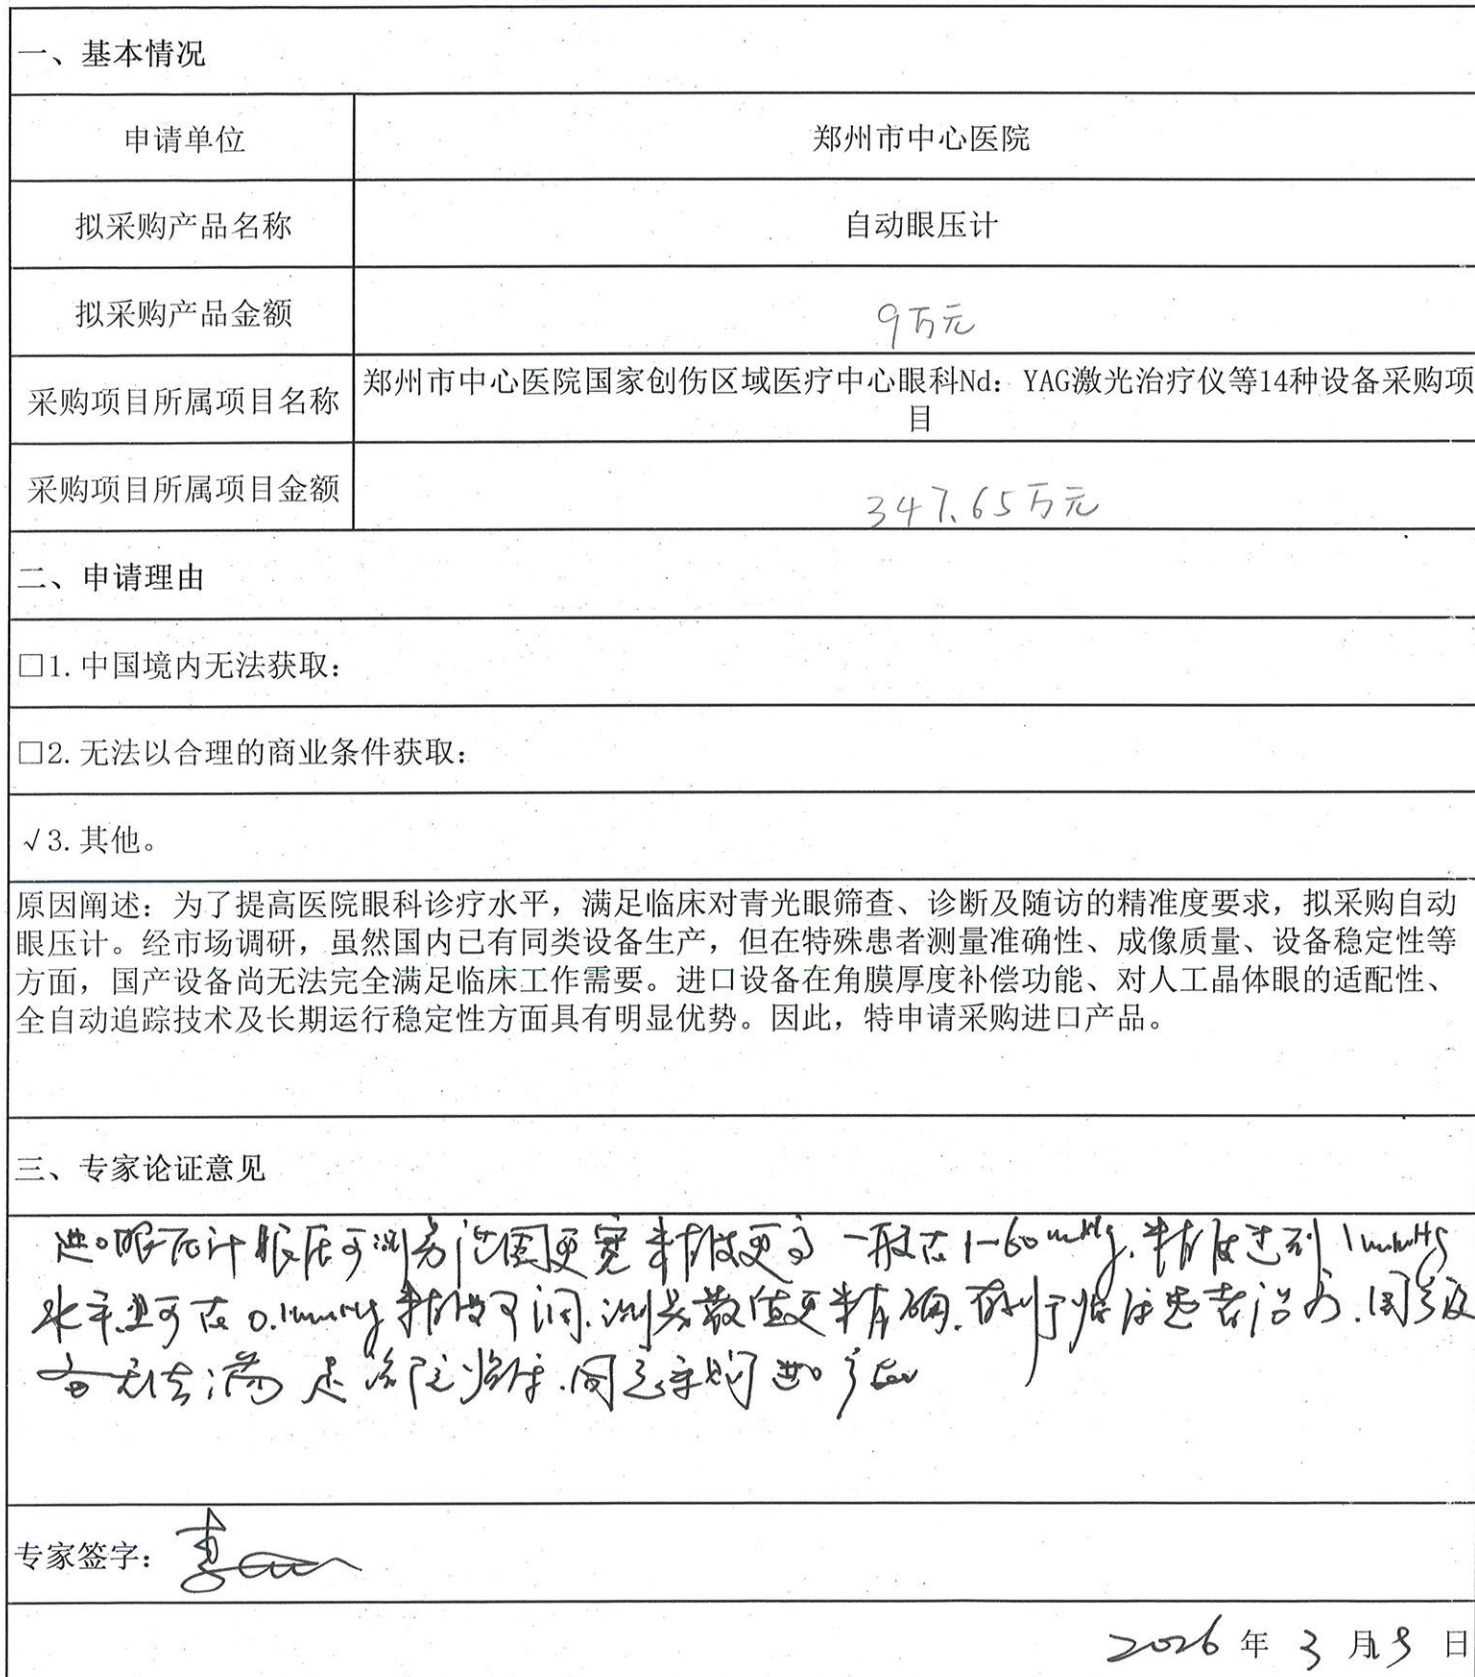 一、基本情况
申请单位
郑州市中心医院
拟采购产品名称
自动眼压计
拟采购产品金额
9万元
采购项目所属项目名称
郑州市中心医院国家创伤区域医疗中心眼科Nd：YAG激光治疗仪等14种设备采购项
目
采购项目所属项目金额
347.65万元
二、申请理由
□1.中国境内无法获取：
□2.无法以合理的商业条件获取：
√3.其他。
原因阐述：为了提高医院眼科诊疗水平，满足临床对青光眼筛查、诊断及随访的精准度要求，拟采购自动
眼压计。经市场调研，虽然国内已有同类设备生产，但在特殊患者测量准确性、成像质量、设备稳定性等
方面，国产设备尚无法完全满足临床工作需要。进口设备在角膜厚度补偿功能、对人工晶体眼的适配性、
全自动追踪技术及长期运行稳定性方面具有明显优势。因此，特申请采购进口产品。
三、专家论证意见
进口眼压计眼压可测量范围更宽 精度更高 一般在1-60mmHg.精度达到1mmHg
水平.更可在0.1mmHg精度可调.测量数值更精确.有利于临床患者治疗.国产设
备无法满足 医院临床.同意采购进口产品
专家签字：
2026 年 3 月 日